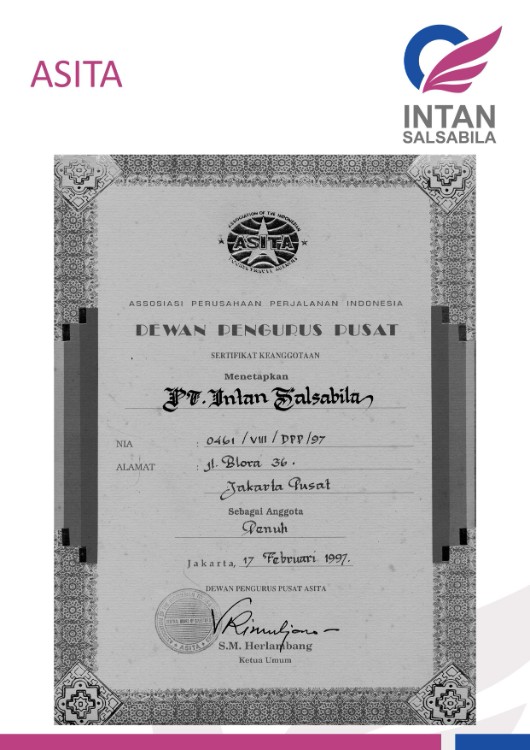 ASITA
INTAN
SALSABILA
ASSOCIATION OF THE INDONESIAN
ASITA
ASSOSIASI PERUSAHAAN PERJALANAN INDONESIA
DEWAN PENGURUS PUSAT
SERTIFIKAT KEANGGOTAAN
Menetapkan
PT. Intan Salsabila
NIA : 0461 / VIII / DPP / 97
ALAMAT : Jl. Blora 36.
Jakarta Pusat
Sebagai Anggota
Penuh
Jakarta, 17 Februari 1997.
DEWAN PENGURUS PUSAT ASITA
S.M. Herlambang
Ketua Umum
ASITA